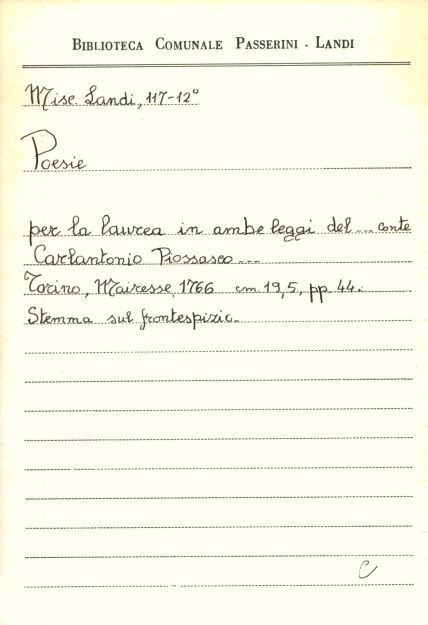 BIBLIOTECA COMUNALE PASSERINI - LANDI
Misc Landi, 117-12°
Poesie
per la laurea in ambe leggi del ... conte
Carlantonio Piossasco ...
Torino, Mairesse, 1766 cm 19,5, pp 44.
Stemma sul frontespizio.
C